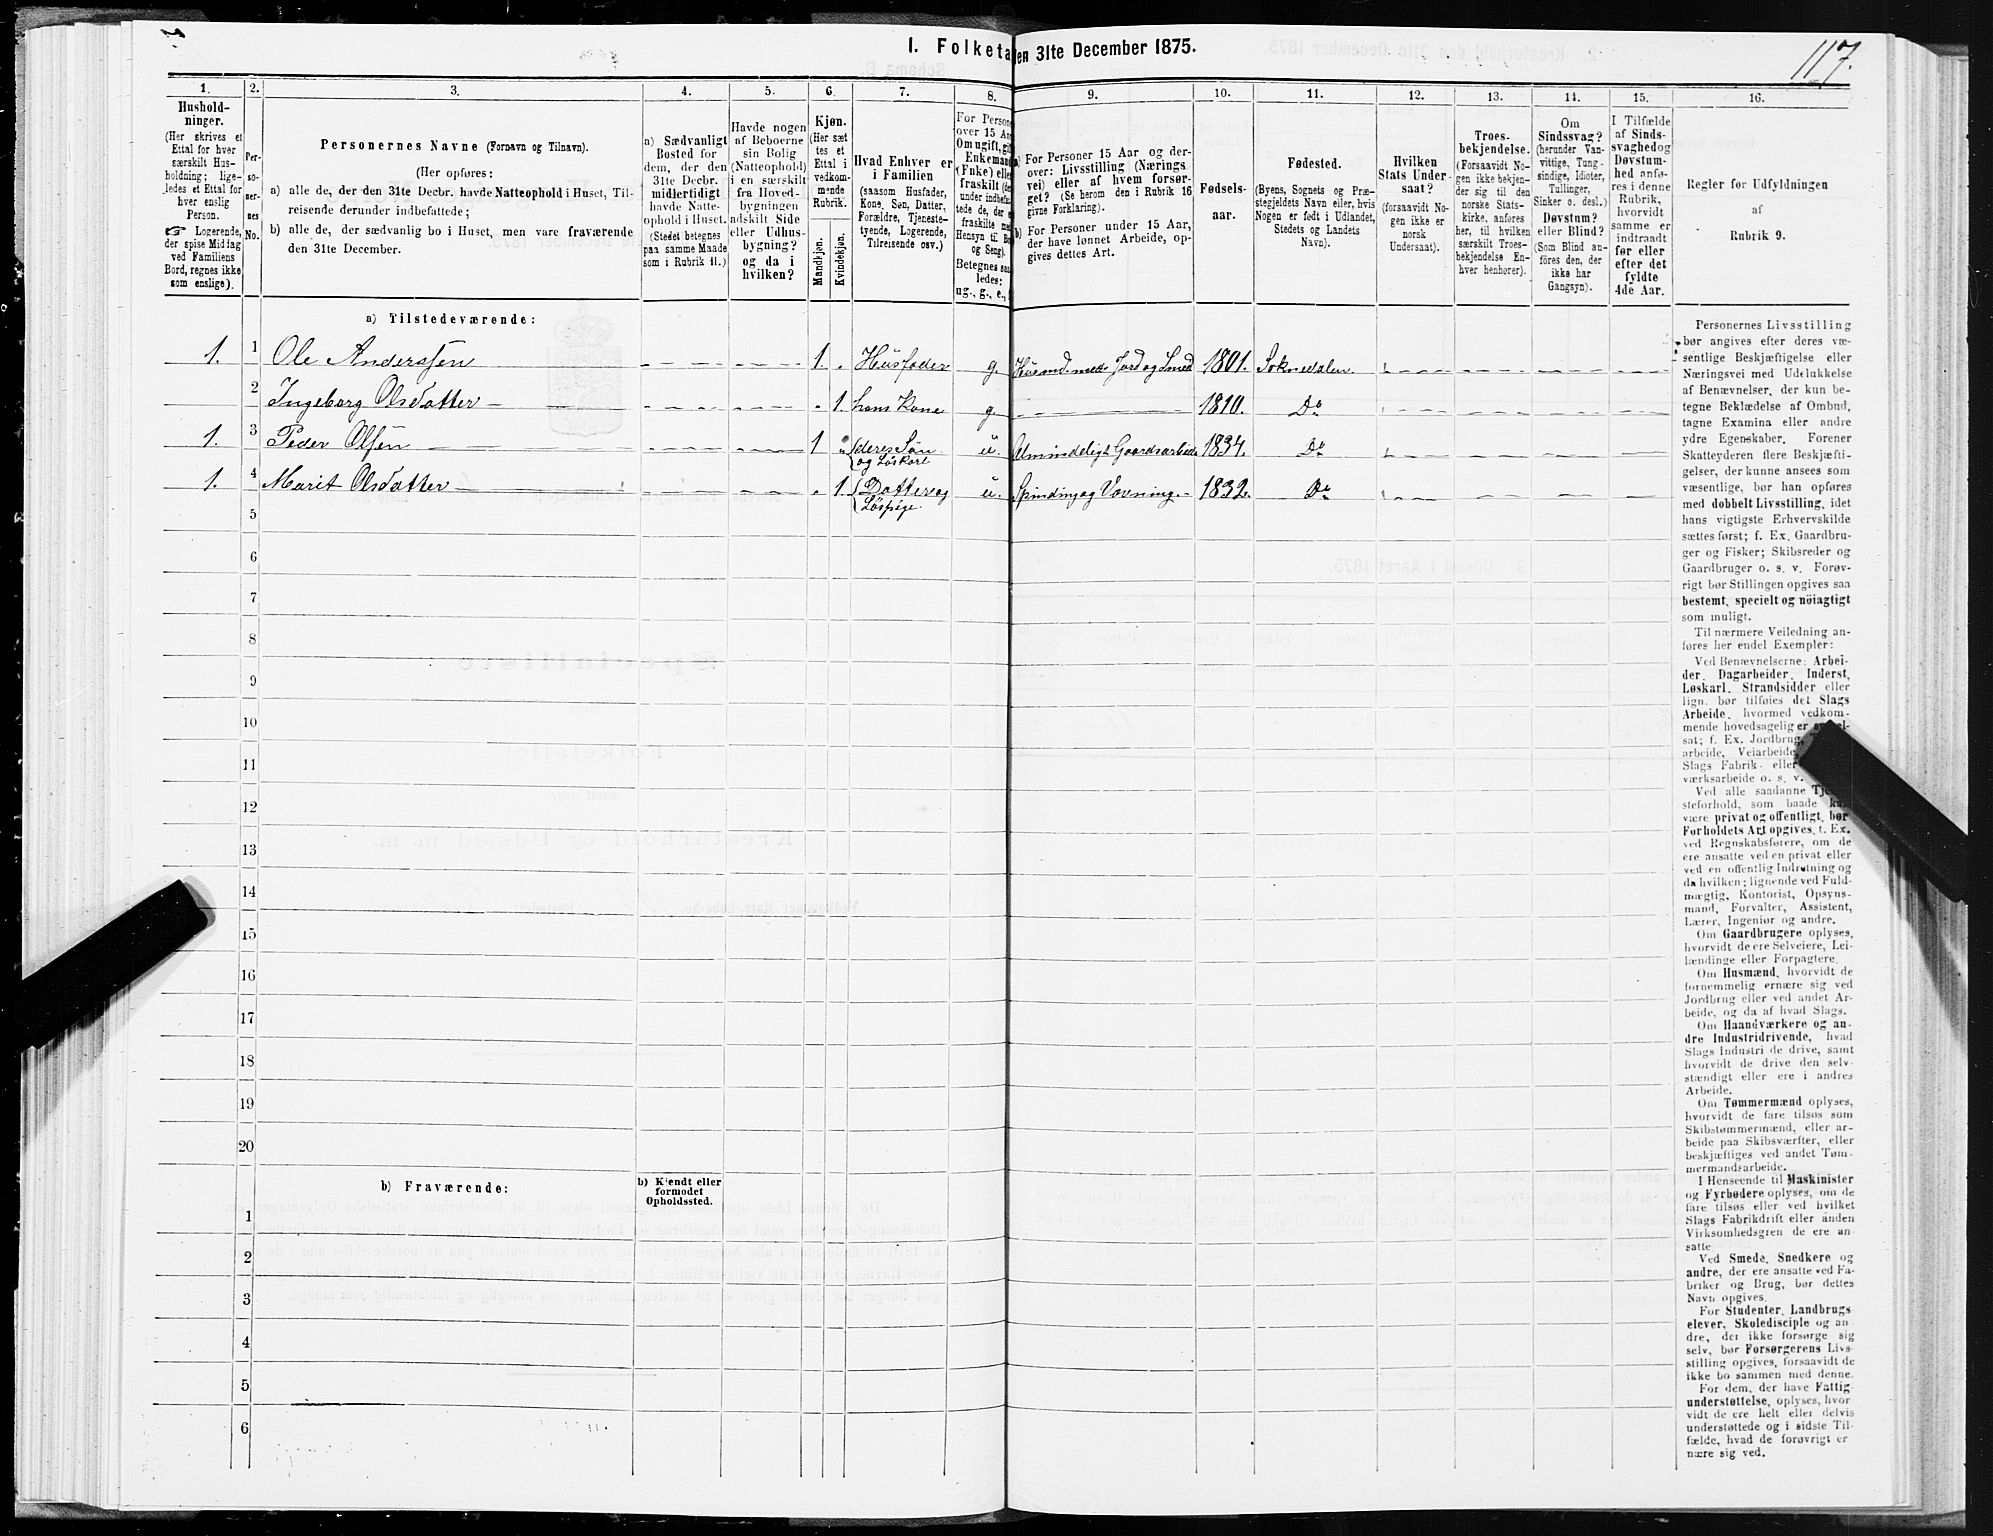 1. Folketa
en 31te December 1875.
117.
1.
2.
3.
4.
5.
6.
7.
8.
9.
10.
11.
12.
13.
14.
15.
16.
Hushold-
ninger.
(Her skrives et
Ettal for hver
særskilt Hus-
holdning; lige-
ledes et Ettal for
hver enslig
Person.
☞ Logerende,
der spise Middag
ved Familiens
Bord, regnes ikke
som enslige).
Per-
so-
ner-
nes
No.
Personernes Navne (Fornavn og Tilnavn).
(Her opføres:
a) alle de, der den 31te Decbr. havde Natteophold i Huset, Til-
reisende derunder indbefattede;
b) alle de, der sædvanlig bo i Huset, men vare fraværende
den 31te December.
a) Sædvanligt
Bosted for
dem, der den
31te Decbr.
midlertidigt
havde Natte-
ophold i Huset.
(Stedet betegnes
paa samme Maade
som i Rubrik 11.)
Havde nogen
af Beboerne
sin Bolig
(Natteophold)
i en særskilt
fra Hoved-
bygningen
adskilt Side
eller Udhus-
bygning?
og da i
hvilken?
Kjøn.
(Her sæt
tes et
Ettal i
vedkom-
mende
Rubrik.
Mandkjøn.
Kvindekjøn.
Hvad Enhver er
i Familien
(saasom Husfader,
Kone, Søn, Datter,
Forældre, Tjeneste-
tyende, Logerende,
Tilreisende osv.)
For Persone
over 15 Aa
Om ugift, gif
Enkemand
(Fnke) elle
fraskilt (de
under indbefa
tede de, der e
fraskilte me
Hensyn til Bo
og Seng).
Betegnes saa
ledes:
ug., g., e.,
a) For Personer 15 Aar og der-
over: Livsstilling (Nærings
vei) eller af hvem forsør-
get? (Se herom den i Rubrik 16
givne Forklaring).
b) For Personer under 15 Aar,
der have lønnet Arbeide, op-
gives dettes Art.
Fødsels-
aar.
Fødested.
(Byens, Sognets og Præ-
stegjeldets Navn eller, hvis
Nogen er født i Udlandet,
Stedets og Landets
Navn).
Hvilken
Stats Under-
saat?
(forsaavidt No-
gen ikke er
norsk
Undersaat).
Troes-
bekjendelse.
(Forsaavidt No-
gen ikke bekjen-
der sig til den
norske Stats-
kirke, anføres
her, til hvilken
særskilt Troes-
bekjendelse En-
hver henhører).
Om
Sindssvag?
(herunder Van-
vittige, Tung-
sindige, Idioter,
Tullinger,
Sinker o. desl.)
Døvstum?
eller Blind?
(Som Blind an-
føres den, der
ikke har
Gangsyn).
I Tilfælde
af Sinds-
svaghed og
Døvstum-
hed anfø-
res i denne
Rubrik,
hvorvidt
samme er
indtraadt
før eller
efter det
fyldte
4de Aar.
Regler for Udfyldningen
af
Rubrik 9.
a) Tilstedeværende:
1. 1 Ole Anderssen 1. Husfader g. Husmd. med Jord og Smed 1801. Soknedalen
2 Ingeborg Olsdatter 1. hans Kone g. 1810. Do
1. 3 Peder Olsen 1 deres Søn u. Almindeligt Gaardsarbeide 1834. Do
og Løskarl
1. 4 Marit Olsdatter 1. Datter og u. Spinding og Vævning 1832. Do
Løspige
5
6
7
8
9
10
11
12
13
14
15
16
17
18
19
20
b) Fraværende:
b) Kjendt eller
formodet
Opholdssted.
1
2
3
4
5
6
Personernes Livsstilling
bør angives efter deres væ-
sentlige Beskjæftigelse eller
Næringsvei med Udelukkelse
af Benævnelser, der kun be-
tegne Beklædelse af Ombud,
tagne Examina eller andre
ydre Egenskaber. Forener
Skatteyderen flere Beskjæfti-
gelser, der kunne ansees som
væsentlige, bør han opføres
med dobbelt Livsstilling, idet
hans vigtigste Erhvervskilde
sættes først; f. Ex. Gaardbru-
ger og Fisker; Skibsreder og
Gaardbruger o. s. v. Forøv-
rigt bør Stillingen opgives saa
bestemt, specielt og nöiagtigt
som muligt.
Til nærmere Veiledning an-
føres her endel Exempler:
Ved Benævnelserne: Arbei-
der, Dagarbeider, Inderst,
Løskarl, Strandsidder eller
lign. bør tilføies det Slags
Arbeide, hvormed vedkom-
mende hovedsagelig er
sat; f. Ex. Jordbrug,
arbeide, Veiarbeide,
Slags Fabrik- eller
værksarbeide o. s. v.
Ved alle saadanne
steforhold, som baade
være privat og offentligt, bør
Forholdets Art opgives, t. Ex.
ved Regnskabsførere, om de
ere ansatte ved en privat eller
ved en offentlig Indretning og
da hvilken; lignende ved Fuld-
mægtig, Kontorist, Opsyns-
mand, Forvalter, Assistent,
Lærer, Ingeniør og andre.
Om Gaardbrugere oplyses,
hvorvidt de ere Selveiere, Lei-
lændinge eller Forpagtere.
Om Husmænd, hvorvidt de
fornemmelig ernære sig ved
Jordbrug eller ved andet Ar-
beide, og da af hvad Slags.
Om Haandværkere og an-
dre Industridrivende, hvad
Slags Industri de drive, samt
hvorvidt de drive den selv-
stændigt eller ere i andres
Arbeide.
Om Tømmermænd oplyses,
hvorvidt de fare tilsøs som
Skibstømmermænd, eller ar-
beide paa Skibsværfter, eller
beskjæftiges ved andet Tøm-
mermandsarbeide.
I Henseende til Maskinister
og Fyrbødere oplyses, om de
fare tilsøs eller ved hvilket
Slags Fabrikdrift eller anden
Virksomhedsgren de ere an-
satte.
Ved Smede, Snedkere og
andre, der ere ansatte ved Fa-
briker og Brug, bør dettes
Navn opgives.
For Studenter, Landbrugs
elever, Skoledisciple og an-
dre, der ikke forsørge sig
selv, bør Forsørgerens Livs-
stilling opgives, forsaavidt de
ikke bo sammen med denne.
For dem, der have Fattig-
understøttelse, oplyses, hvor
vidt de ere helt eller delvis
understøttede og i sidste Til-
fælde, hvad de forøvrigt er
nære sig ved.